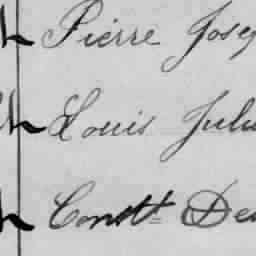 Pierre Jose
Louis Jule
Constt De